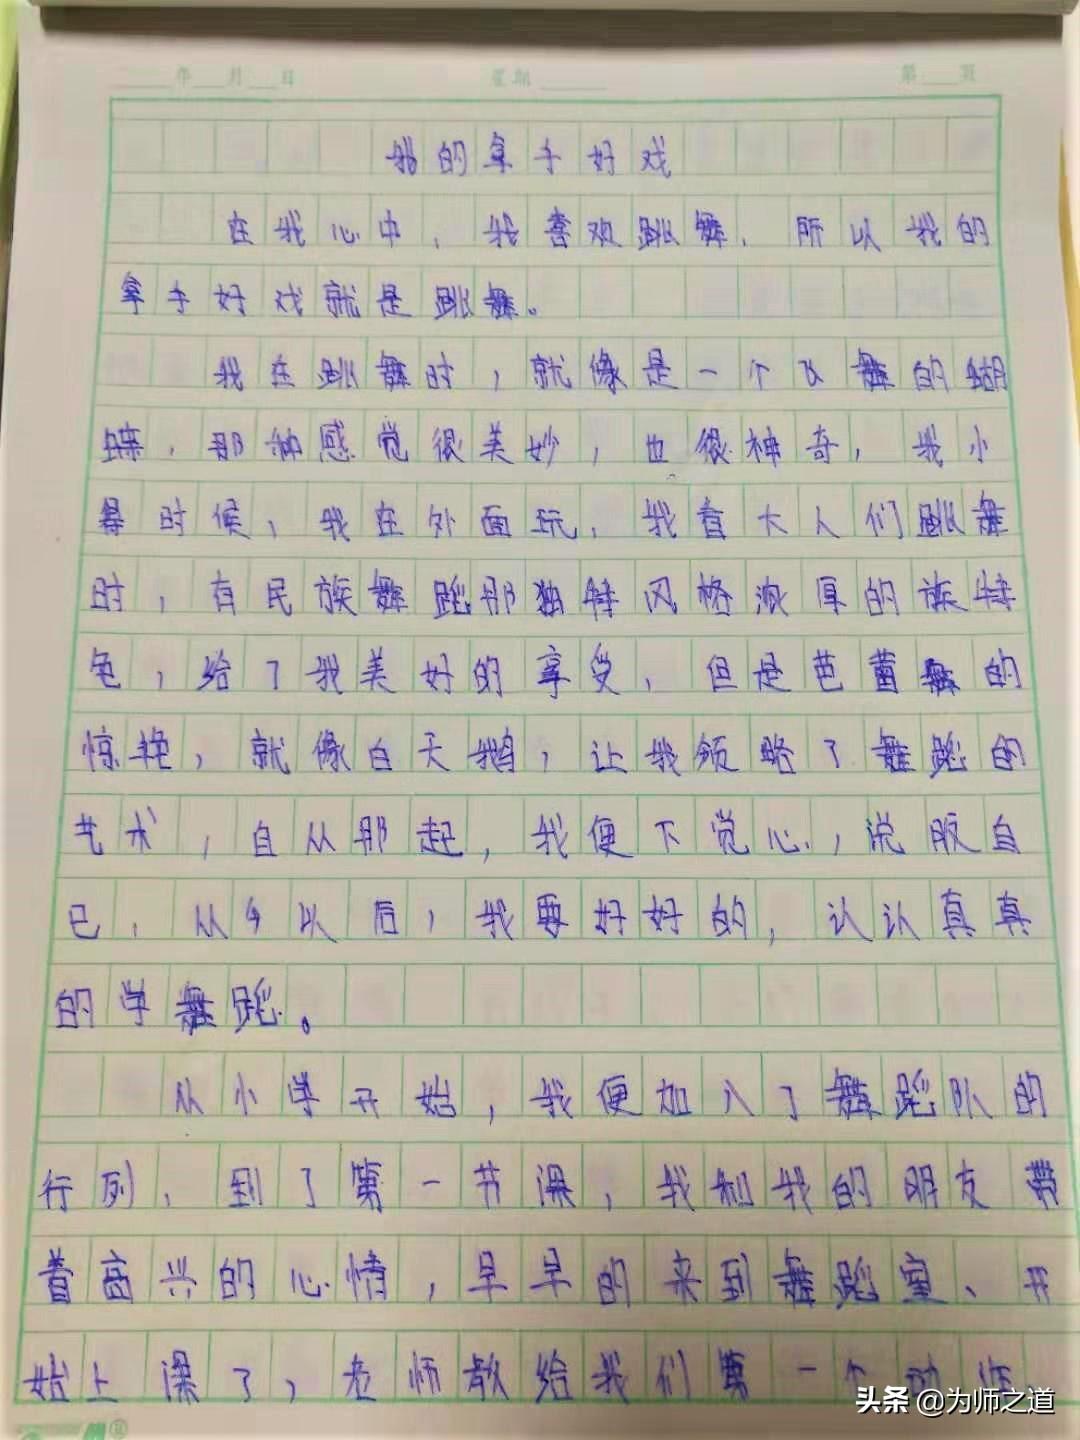 年 月 日 星期 第 页
我的拿手好戏
在我心中，我喜欢跳舞，所以我的
拿手好戏就是跳舞。
我在跳舞时，就像是一个飞舞的蝴
蝶，那种感觉很美妙，也很神奇，我小
时候，我在外面玩，我看大人们跳舞
时，有民族舞蹈那独特风格浓厚的族特
色，给了我美好的享受，但是芭蕾舞的
惊艳，就像白天鹅，让我领略了舞蹈的
艺术，自从那起，我便下觉心，说服自
已，从今以后，我要好好的，认认真真
的学舞蹈。
从小学开始，我便加入了舞蹈队的
行列，到了第一节课，我和我的朋友带
着高兴的心情，早早的来到舞蹈室、开
始上课了，老师教给我们第一个动作
头条 @为师之道